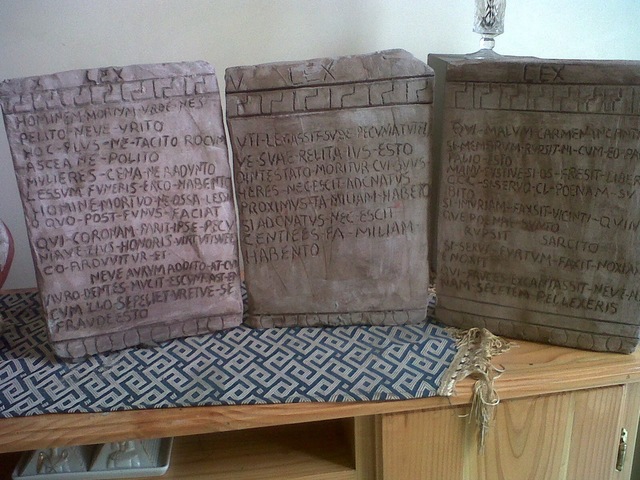 LEX
HOMINEM MORTVM VRBE NES
PELITO NEVE VRITO
HOC PLVS NE TACITO ROCVM
ASCEA NE POLITO
MVLIERES CEMA NE RADVNTO
LESSVM FVNERIS ERCO HABENTO
HOMINE MORTVO NE OSSA LESS
QVO POST FVNVS FACIAT
QVI CORONAM PARIT IPSE PECV
NIAVE EIVS HONORIS VIRTVTISVE
CO ARDVVITVR ET
NEVE AVRVM ADDITO AT CV
AVRO DENTES
CVM ILLO SEPELIET VRETVE SE
FRAVDE ESTO
V LEX
VTI LEGASSIT SVSE PECVNIA TVTEL
VE SVAE REI ITA IVS ESTO
INTESTATO MORITVR CVI SVVS
HERES NEC ESCIT ADCNATVS
PROXIMVS FA MILIAM HABETO
SI ADCNATVS NEC ESCIT
CENTILES FA MILIAM
HABENTO
LEX
QVI MALVM CARMEN INCANT
SI MEMBRVM RVPSIT NI CVM EO PA
TALIO ESTO
MANV FVSTIVE SI OS FRESIT LIBER
SERVO CL POENAM SV
BITO
SI INIVRIAM FAXSIT VICINTI QVIN
QVE POENAE SVNTO
RVPSIT SARCITO
SI SERVS FVRTVM FAXIT NOXIAM
NOXIT
QVI FRVCES EXCANTASSIT NEVE
SECETEM PELLEXERIS